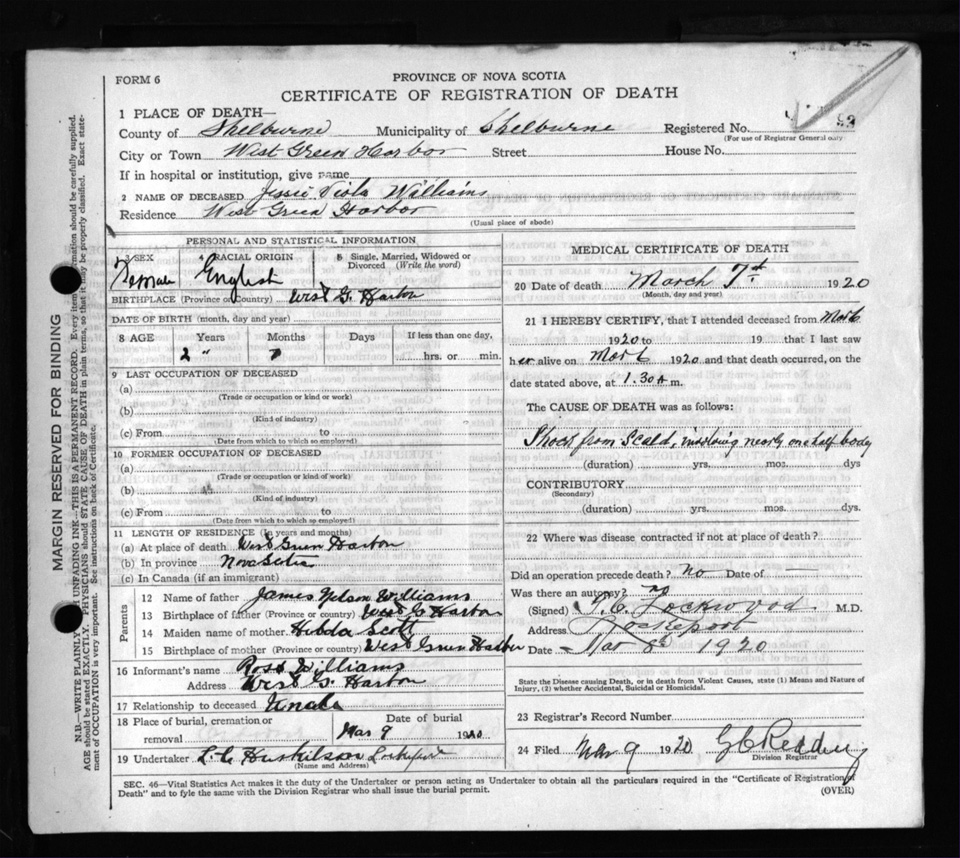 FORM 6
PROVINCE OF NOVA SCOTIA
CERTIFICATE OF REGISTRATION OF DEATH
1 PLACE OF DEATH
County of Shelburne Municipality of Shelburne Registered No.
(For use of Registrar General only
City or Town West Green Harbor Street House No.
If in hospital or institution, give name
2 NAME OF DECEASED Jessie Viola Williams
Residence West Green Harbor
(Usual place of abode)
PERSONAL AND STATISTICAL INFORMATION
3 SEX 4 RACIAL ORIGIN 5 Single, Married, Widowed or
Divorced (Write the word)
Female English
BIRTHPLACE (Province or Country) West G. Harbor
DATE OF BIRTH (month, day and year)
8 AGE Years Months Days If less than one day,
2 " 7 hrs. or min.
9 LAST OCCUPATION OF DECEASED
(a)
(Trade or occupation or kind or work)
(b)
(Kind of industry)
(c) From to
(Date from which to which so employed)
10 FORMER OCCUPATION OF DECEASED
(a)
(Trade or occupation or kind of work)
(b)
(Kind of industry)
(c) From to
(Date from which to which so employed)
11 LENGTH OF RESIDENCE (in years and months)
(a) At place of death West Green Harbor
(b) In province Nova Scotia
(c) In Canada (if an immigrant)
Parents
12 Name of father James Nelson Williams
13 Birthplace of father (Province or country) West G Harbor
14 Maiden name of mother Hilda Scott
15 Birthplace of mother (Province or country) West Green Harbor
16 Informant's name Ross Williams
Address West G. Harbor
17 Relationship to deceased
18 Place of burial, cremation or
removal Date of burial
Mar 9 1920
19 Undertaker L. C. Lockeport
(Name and Address)
MEDICAL CERTIFICATE OF DEATH
20 Date of death March 7th 1920
(Month, day and year)
21 I HEREBY CERTIFY, that I attended deceased from Mar 6
1920 to 19 that I last saw
her alive on Mar 6 1920 and that death occurred, on the
date stated above, at 1.30 A m.
The CAUSE OF DEATH was as follows:
Shock from Scald, involving nearly one half body
(duration) yrs. mos. dys
CONTRIBUTORY
(Secondary)
(duration) yrs. mos. dys.
22 Where was disease contracted if not at place of death?
Did an operation precede death? no Date of
Was there an autopsy? no
(Signed) Lockwood M.D.
Address Lockeport
Date Mar 8th 1920
State the Disease causing Death, or in death from Violent Causes, state (1) Means and Nature of
Injury, (2) whether Accidental, Suicidal or Homicidal.
23 Registrar's Record Number
24 Filed Mar 9 1920 G C Redding
Division Registrar
SEC. 46—Vital Statistics Act makes it the duty of the Undertaker or person acting as Undertaker to obtain all the particulars required in the "Certificate of Registration of
Death" and to fyle the same with the Division Registrar who shall issue the burial permit.
(OVER)
MARGIN RESERVED FOR BINDING
N.B.—WRITE PLAINLY UNFADING INK—THIS IS A PERMANENT RECORD. Every item information should be carefully supplied.
AGE should be stated EXACTLY. PHYSICIANS should STATE CAUSE OF DEATH in plain terms, so that it may be properly classified. Exact state-
ment of OCCUPATION is very important. See instructions on back of Certificate.